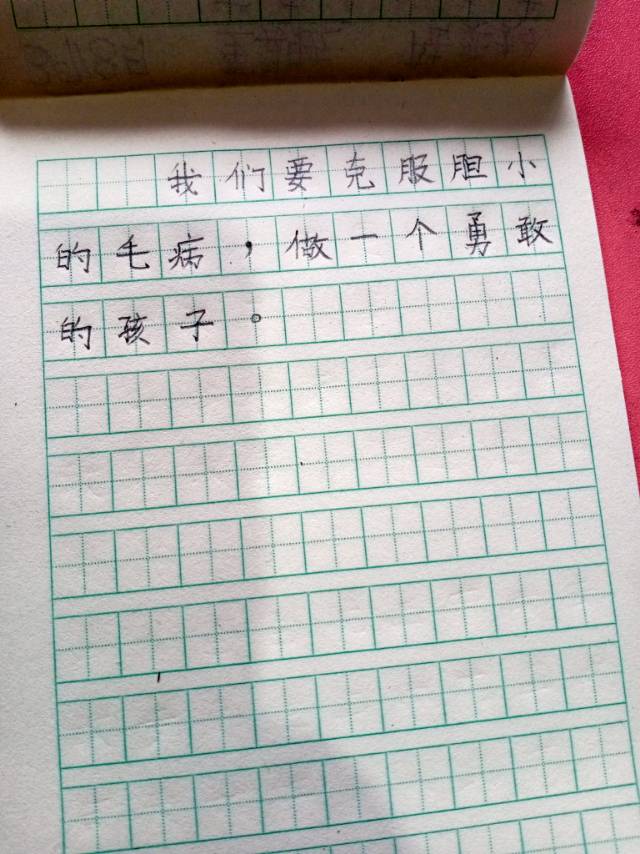 我们要克服胆小
的毛病，做一个勇敢
的孩子。